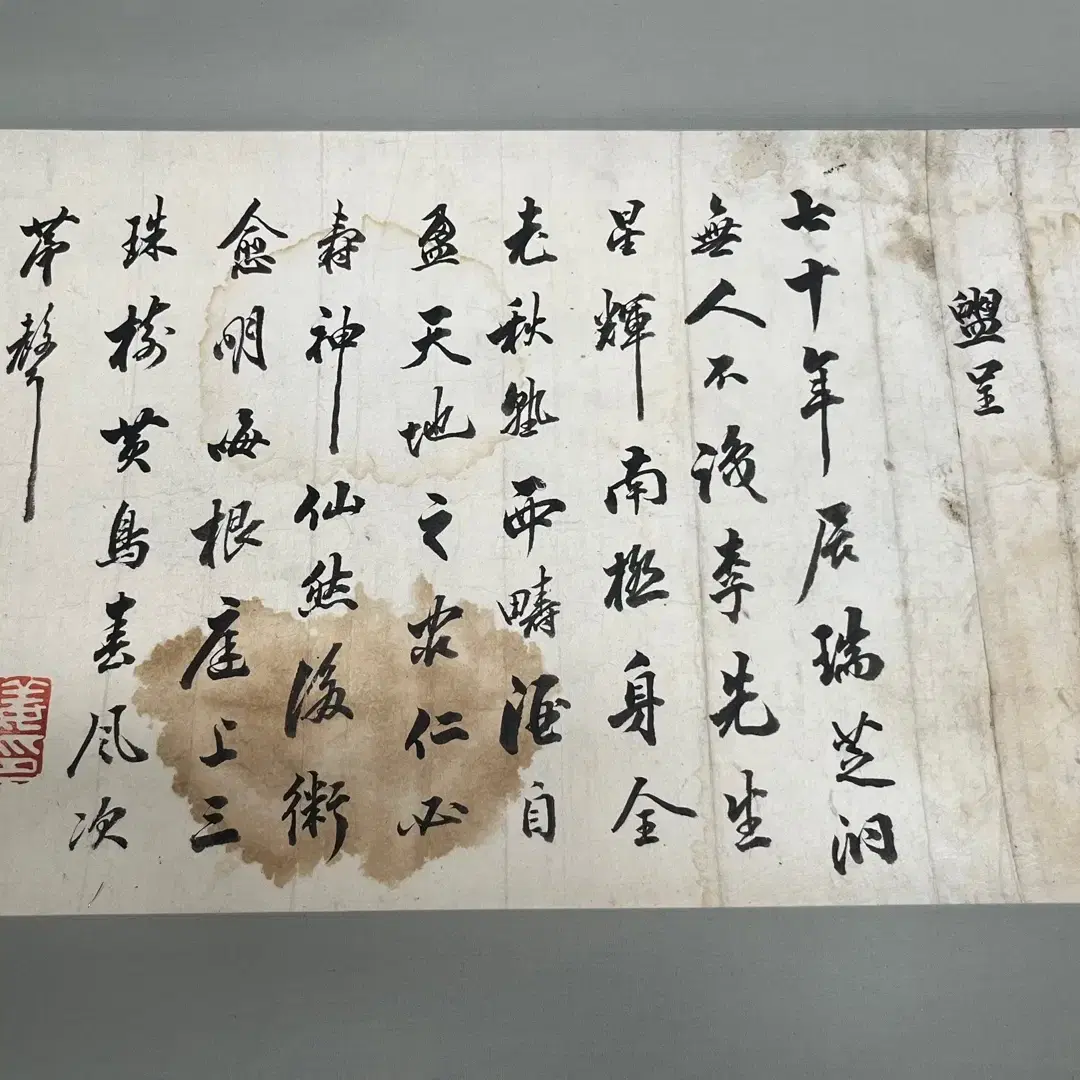 盥呈
七十年辰瑞芝洞
無人不後李先生
星輝南極身全
老秋熟西疇酒自
盈天地之家仁必
壽神仙然後術
愈明晦根庭上三
珠樹黃鳥春風次
第聲